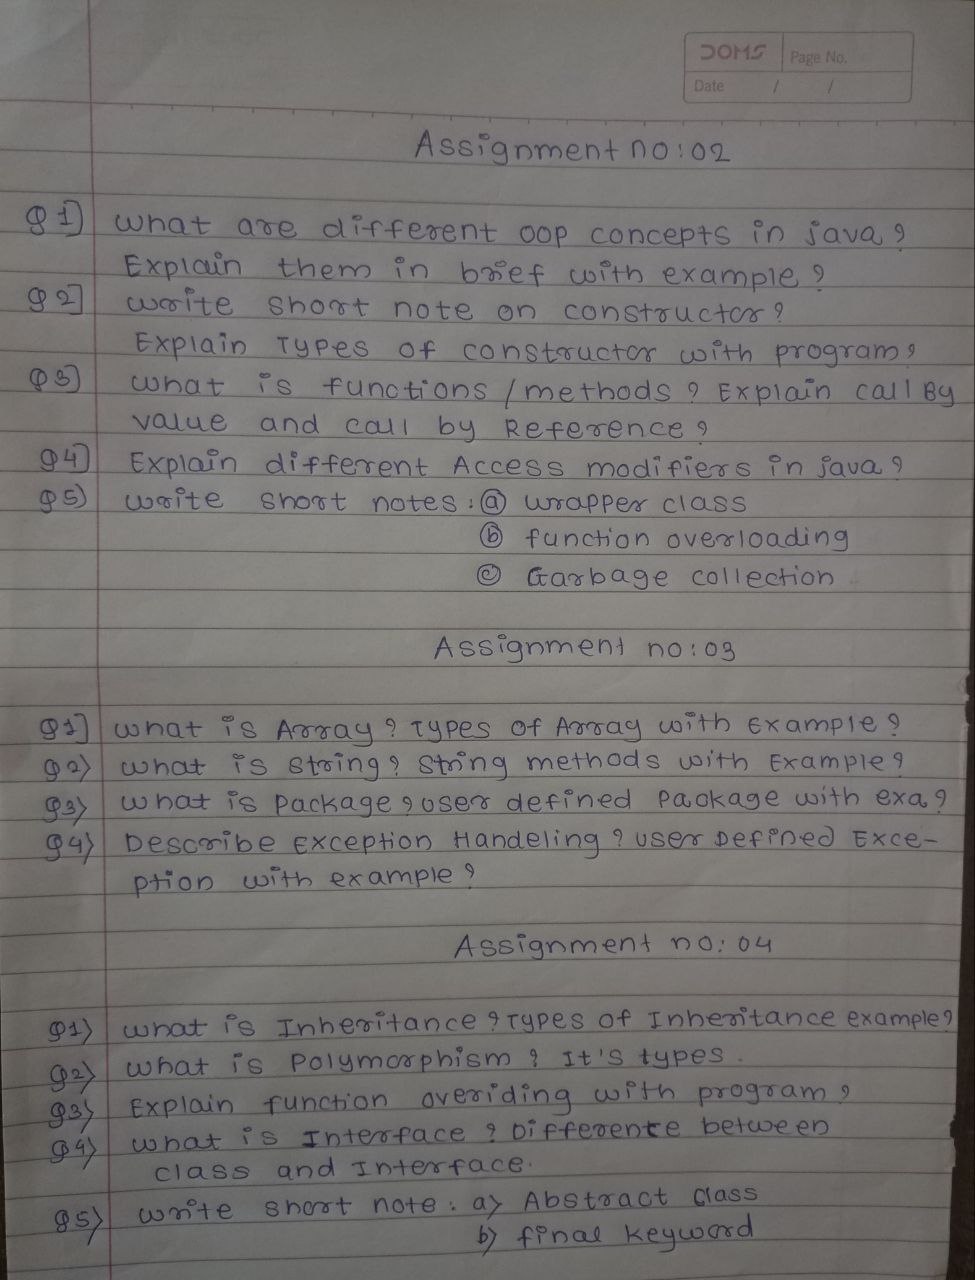 DOMS Page No.
Date / /
Assignment no:02
Q1] what are different OOP concepts in java?
Explain them in brief with example?
Q2] write short note on constructor?
Explain Types of constructor with program?
Q3] what is functions/methods? Explain call By
value and call by Reference?
Q4] Explain different Access modifiers in java?
Q5) write short notes: (a) wrapper class
(b) function overloading
(c) Garbage collection
Assignment no:03
Q1] what is Array? Types of Array with Example?
Q2) what is string? string methods with Example?
Q3) what is package? user defined package with exa?
Q4) Describe Exception Handeling? user Defined Exce-
ption with example?
Assignment no:04
Q1) what is Inheritance? Types of Inheritance example?
Q2) what is Polymorphism? It's types.
Q3) Explain function overiding with program?
Q4) what is Interface? Difference between
class and Interface.
Q5) write short note: a) Abstract class
b) final keyword